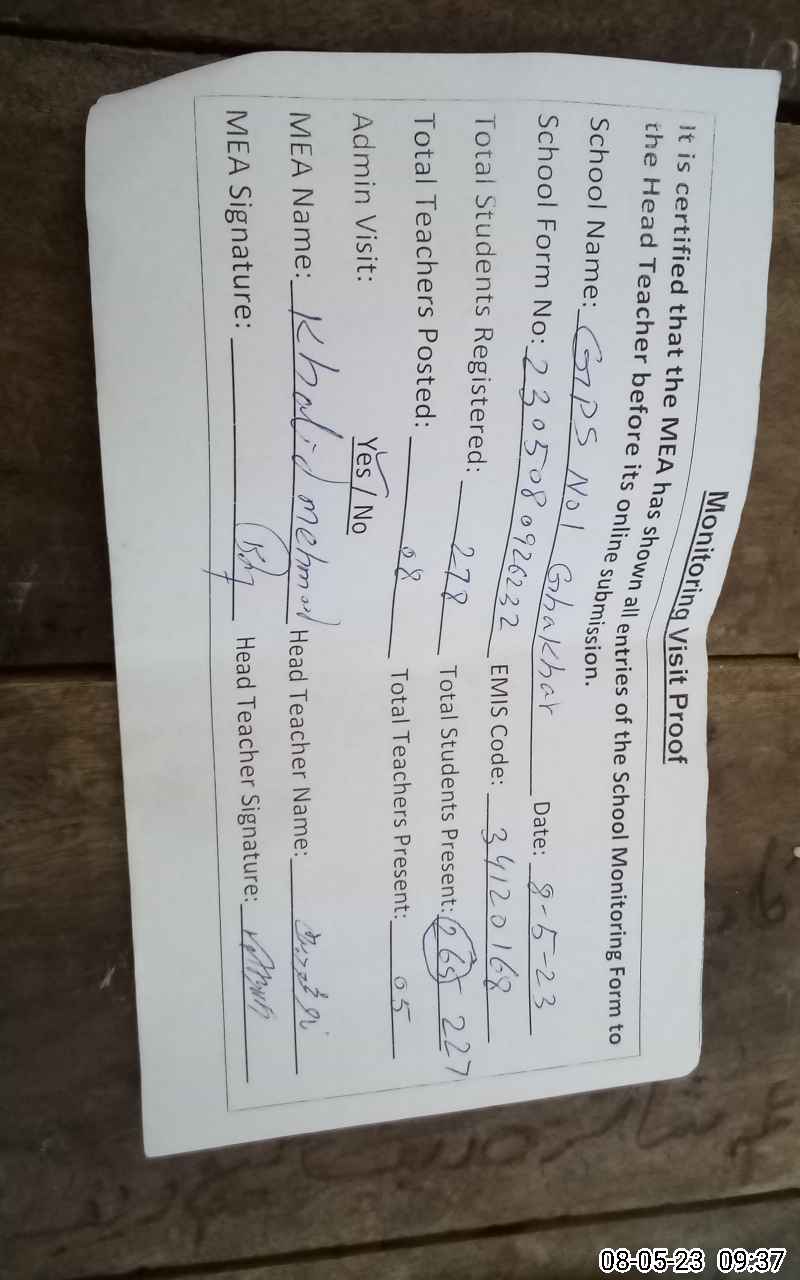 Monitoring Visit Proof
It is certified that the MEA has shown all entries of the School Monitoring Form to
the Head Teacher before its online submission.
School Name: GPS No1 Ghakhar Date: 8-5-23
School Form No: 2305080926232 EMIS Code: 34120168
Total Students Registered: 278 Total Students Present: 265 227
Total Teachers Posted: 08 Total Teachers Present: 05
Admin Visit: Yes / No
MEA Name: Khalid mehmood Head Teacher Name:
MEA Signature: Head Teacher Signature:
08-05-23 09:37